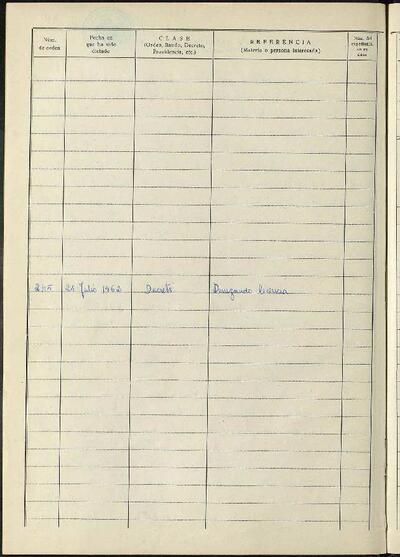 Núm. de orden
Fecha en que ha sido dictado
CLASE (Orden, Bando, Decreto, Providencia, etc.)
REFERENCIA (Materia o persona interesada)
Núm. del expediente en su caso
25 Julio 1962 Decreto Denegando licencia